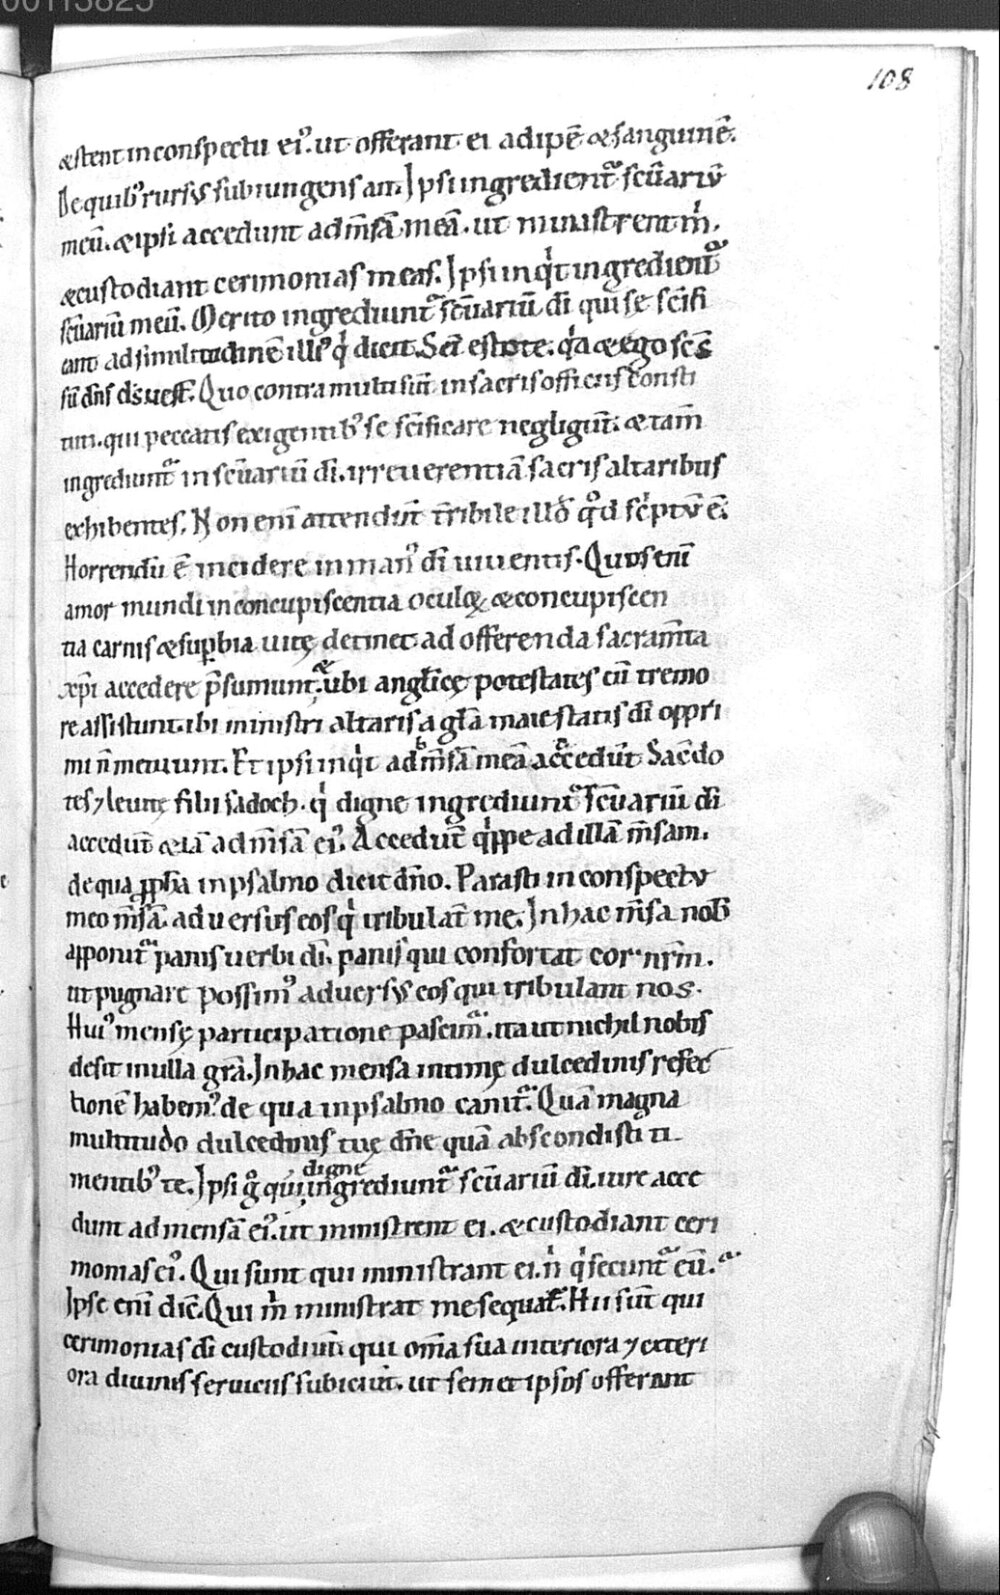 00113825
108
& stent in conspectu ei᾽. ut offerant ei adipē & sanguinē.
De quib᾽ rursus subiungens ait. Ipsi ingredient᷑ scūariū
meū. & ipsi accedunt ad m̄sā meā. ut ministrent m̍.
& custodiant cerimonias meas. Ipsi inq̍t ingredient᷑
scūariū meū. Merito ingrediunt᷑ scūariū dī qui se scīfi
cant ad similitudinē illi᾽ q̍ dicit. Scī estote. q̍a & ego scs̄
sū dn̄s ds̄ uesr̄. Quo contra multi sūt in sacris officiis consti
tuti. qui peccatis exigentib᾽ se scīficare negligūt. & tam̄
ingrediunt᷑ in scūariū dī. irreuerentiā sacris altaribus
exhibentes. Non enī attendūt t̄ribile illd̄ qd̊ sc̍ptū ē.
Horrendū ē incidere in man᾽ dī uiuentis. Quos enī
amor mundi in concupiscentia oculoꝝ & concupiscen
tia carnis & suꝑbia uitę detinet. ad offerenda sacram̄ta
xp̄i accedere p̄sumunt. & ubi anglicę potestates cū tremo
re assistunt. ibi ministri altaris a glā maiestatis dī oppri
mi n̄ metuunt. Et ipsi inq̍t ad m̄sā meā accedūt. Sacdo
tes ⁊ leuitę filii sadoch. q̍ digne ingrediunt᷑ scūariū dī
accedūt & iā ad m̄sā ei᾽. Accedūt q̍ppe ad illā m̄sam.
de qua ꝓph̄a in psalmo dicit dn̄o. Parasti in conspectu
meo m̄sā. aduersus eos q̍ tribulāt me. In hac m̄sa nob̄
apponit᷑ panis uerbi dī. panis qui confortat cor nr̄m.
ut pugnare possim᾽ aduersus eos qui tribulant nos.
Hui᾽ mensę participatione pascim᷑. ita ut nichil nobis
desit in ulla grā. In hac mensa intimę dulcedinis refec
tionē habem᾽. de qua in psalmo canit᷑. Quā magna
multitudo dulcedinis tuę dn̄e quā abscondisti ti
mentib᾽ te. Ipsi g̊ qui digne ingrediunt᷑ scūariū dī. iure acce
dunt ad mensā ei᾽. ut ministrent ei. & custodiant ceri
monias ei᾽. Qui sunt qui ministrant ei. n̍ q̍ secunt᷑ eū.
Ipse enī dic̄. Qui m̍ ministrat me sequat᷑. Hii sūt qui
cerimonias dī custodiunt. qui om̄a sua interiora ⁊ exteri
ora diuinis seruiciis subiciūt. ut semet ipsos offerant